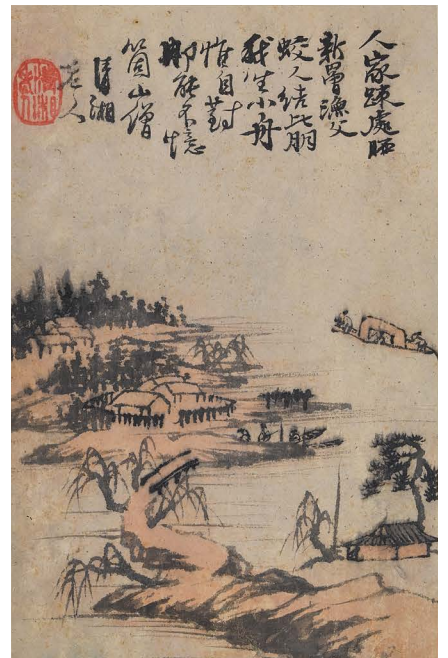 人家踈處晒
新罾漁父
蛟人結比朋
我坐小舟
惟自對
那能不憶
箇山僧
清湘
老人